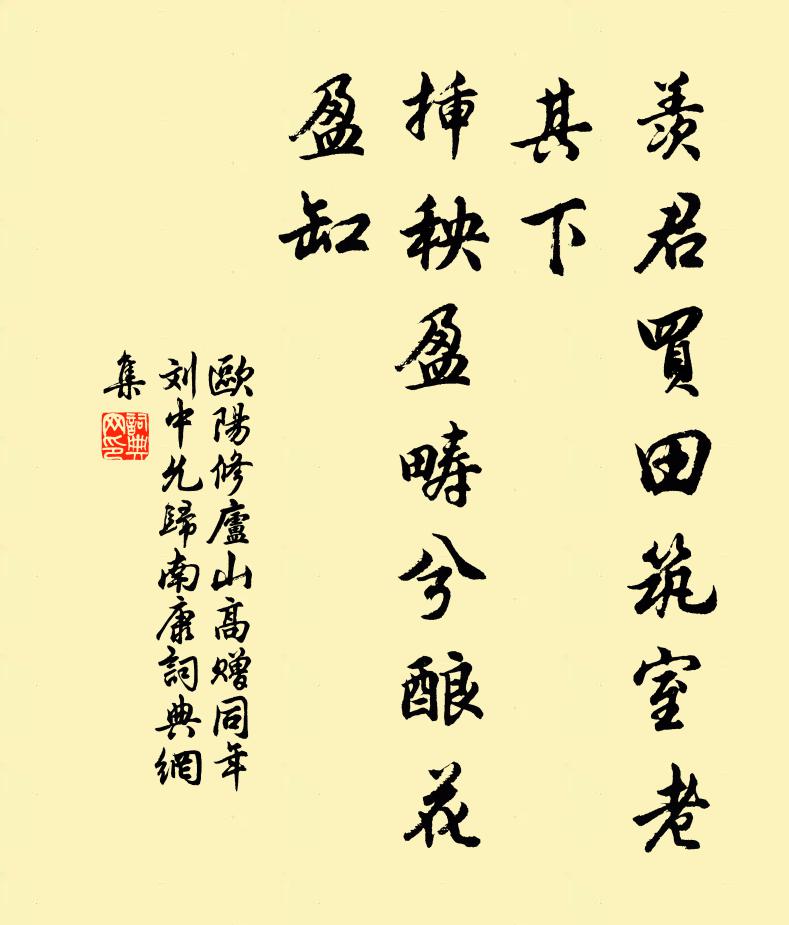 羨君買田筑室老
其下
挿秧盈疇兮酿花
盈缸
歐陽修廬山高赠同年
刘中允歸南康詞典網
集
詞典
网印